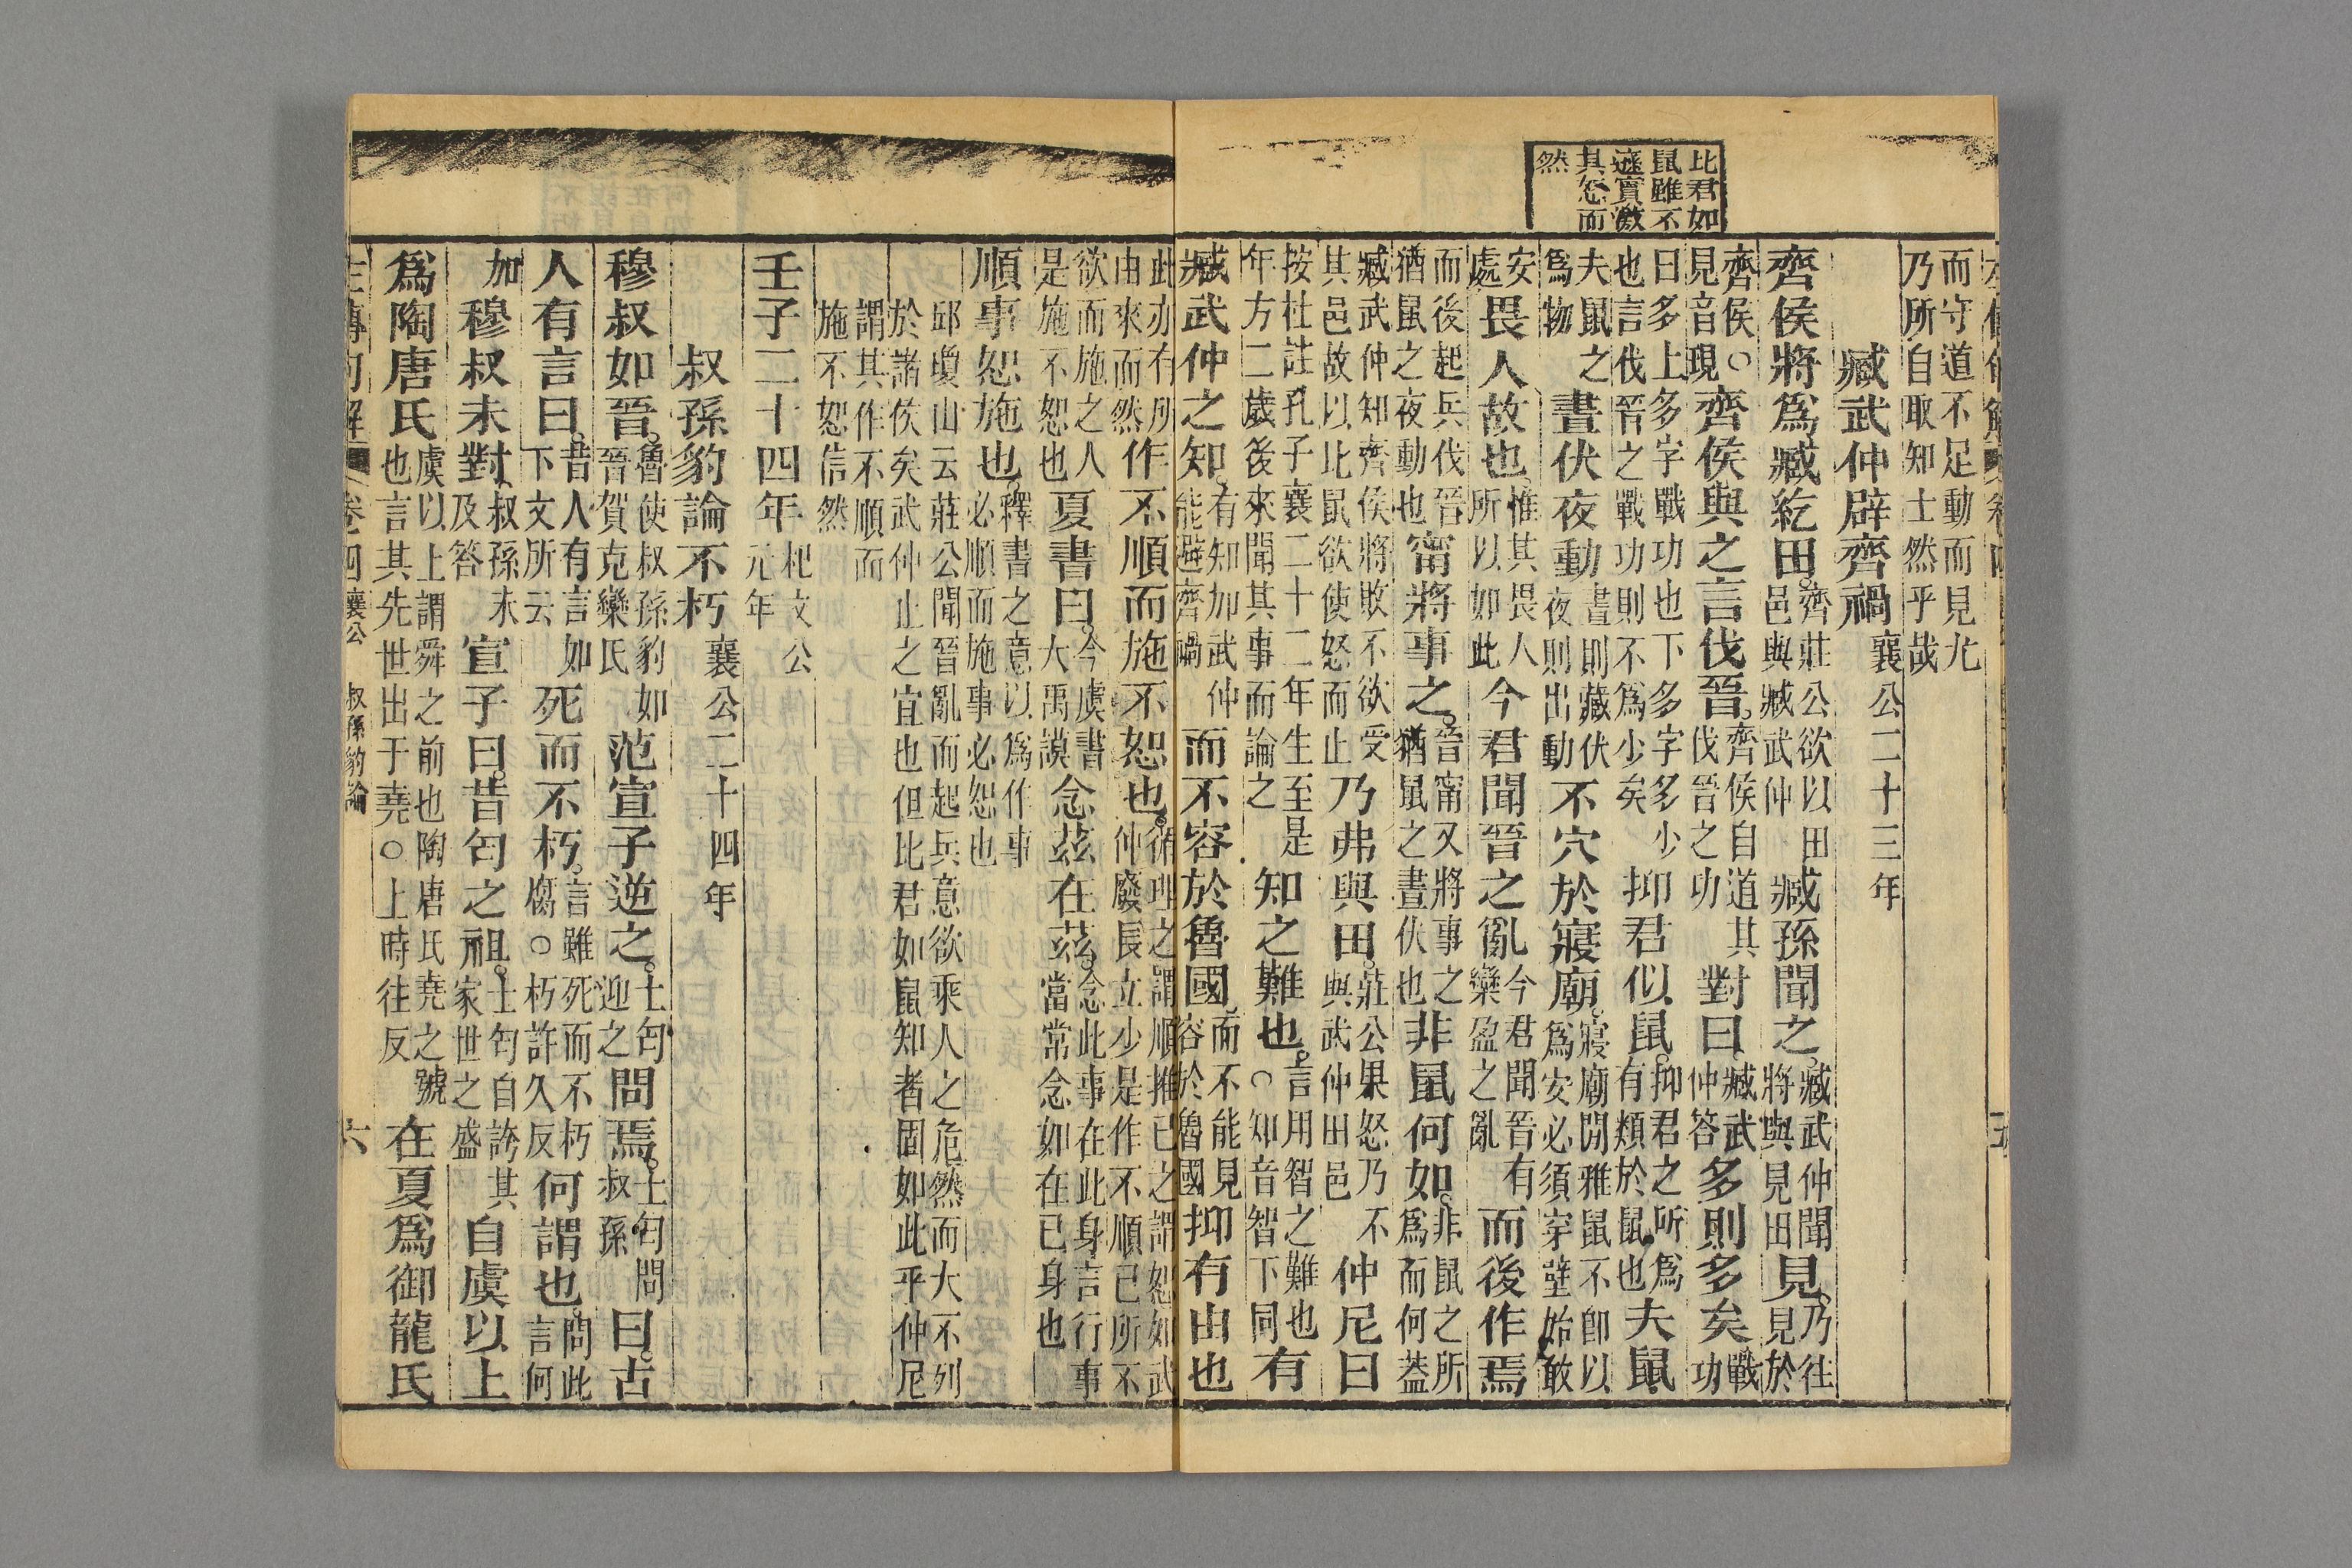 比君如
鼠雖不
遜實激
其怒而
然
而守道不足動而見尤乃所自取知士然乎哉
臧武仲辟齊禍 襄公二十三年
齊侯將爲臧紇田。齊莊公欲以田邑與臧武仲臧孫聞之。臧武仲聞將與見田見。乃往見於
齊侯○見音現齊侯與之言伐晉。齊侯自道其伐晉之功對曰臧武仲答多則多矣戰功
曰多上多字戰功也下多字多少也言伐晉之戰功則不爲少矣抑君似鼠。抑君之所爲有類於鼠也夫鼠
夫鼠之爲物晝伏夜動晝則藏伏夜則出動不穴於寢廟。寢廟閒雅鼠不卽以爲安必須穿壁始敢
安處畏人故也。惟其畏人所以如此今君聞晉之亂今君聞晉有欒盈之亂而後作焉
而後起兵伐晉猶鼠之夜動也甯將事之。晉甯又將事之猶鼠之晝伏也非鼠何如。非鼠之所爲而何葢
臧武仲知齊侯將敗不欲受其邑故以比鼠欲使怒而止乃弗與田。莊公果怒乃不與武仲田邑仲尼曰
按杜註孔子襄二十二年生至是年方二歲後來聞其事而論之知之難也。言用智之難也○知音智下同有
臧武仲之知。有知加武仲能避齊禍而不容於魯國。而不能見容於魯國抑有由也
此亦有所由來而然作不順而施不恕也。循理之謂順推已之謂恕如武仲廢長立少是作不順已所不
欲而施之人是施不恕也夏書曰。今虞書大禹謨念茲在茲。念此事在此身言行事當常念如在已身也
順事恕施也。釋書之意以爲作事必順而施事必恕也
邱瓊山云莊公聞晉亂而起兵意欲乘人之危然而大不列於諸侯矣武仲止之宜也但比君如鼠知者固如此乎仲尼
謂其作不順而施不恕信然
壬子二十四年 杞文公元年
叔孫豹論不朽 襄公二十四年
穆叔如晉。魯使叔孫豹如晉賀克欒氏范宣子逆之。士匄迎之問焉。士匄問叔孫曰。古
人有言曰。昔人有言如下文所云死而不朽。言雖死而不朽腐○朽許久反何謂也。問此言何
加穆叔未對。叔孫未及答宣子曰。昔匄之祖。士匄自誇其家世之盛自虞以上
爲陶唐氏虞以上謂舜之前也陶唐氏堯之號也言其先世出于堯○上時往反在夏爲御龍氏
卷四 襄公 叔孫豹論 六